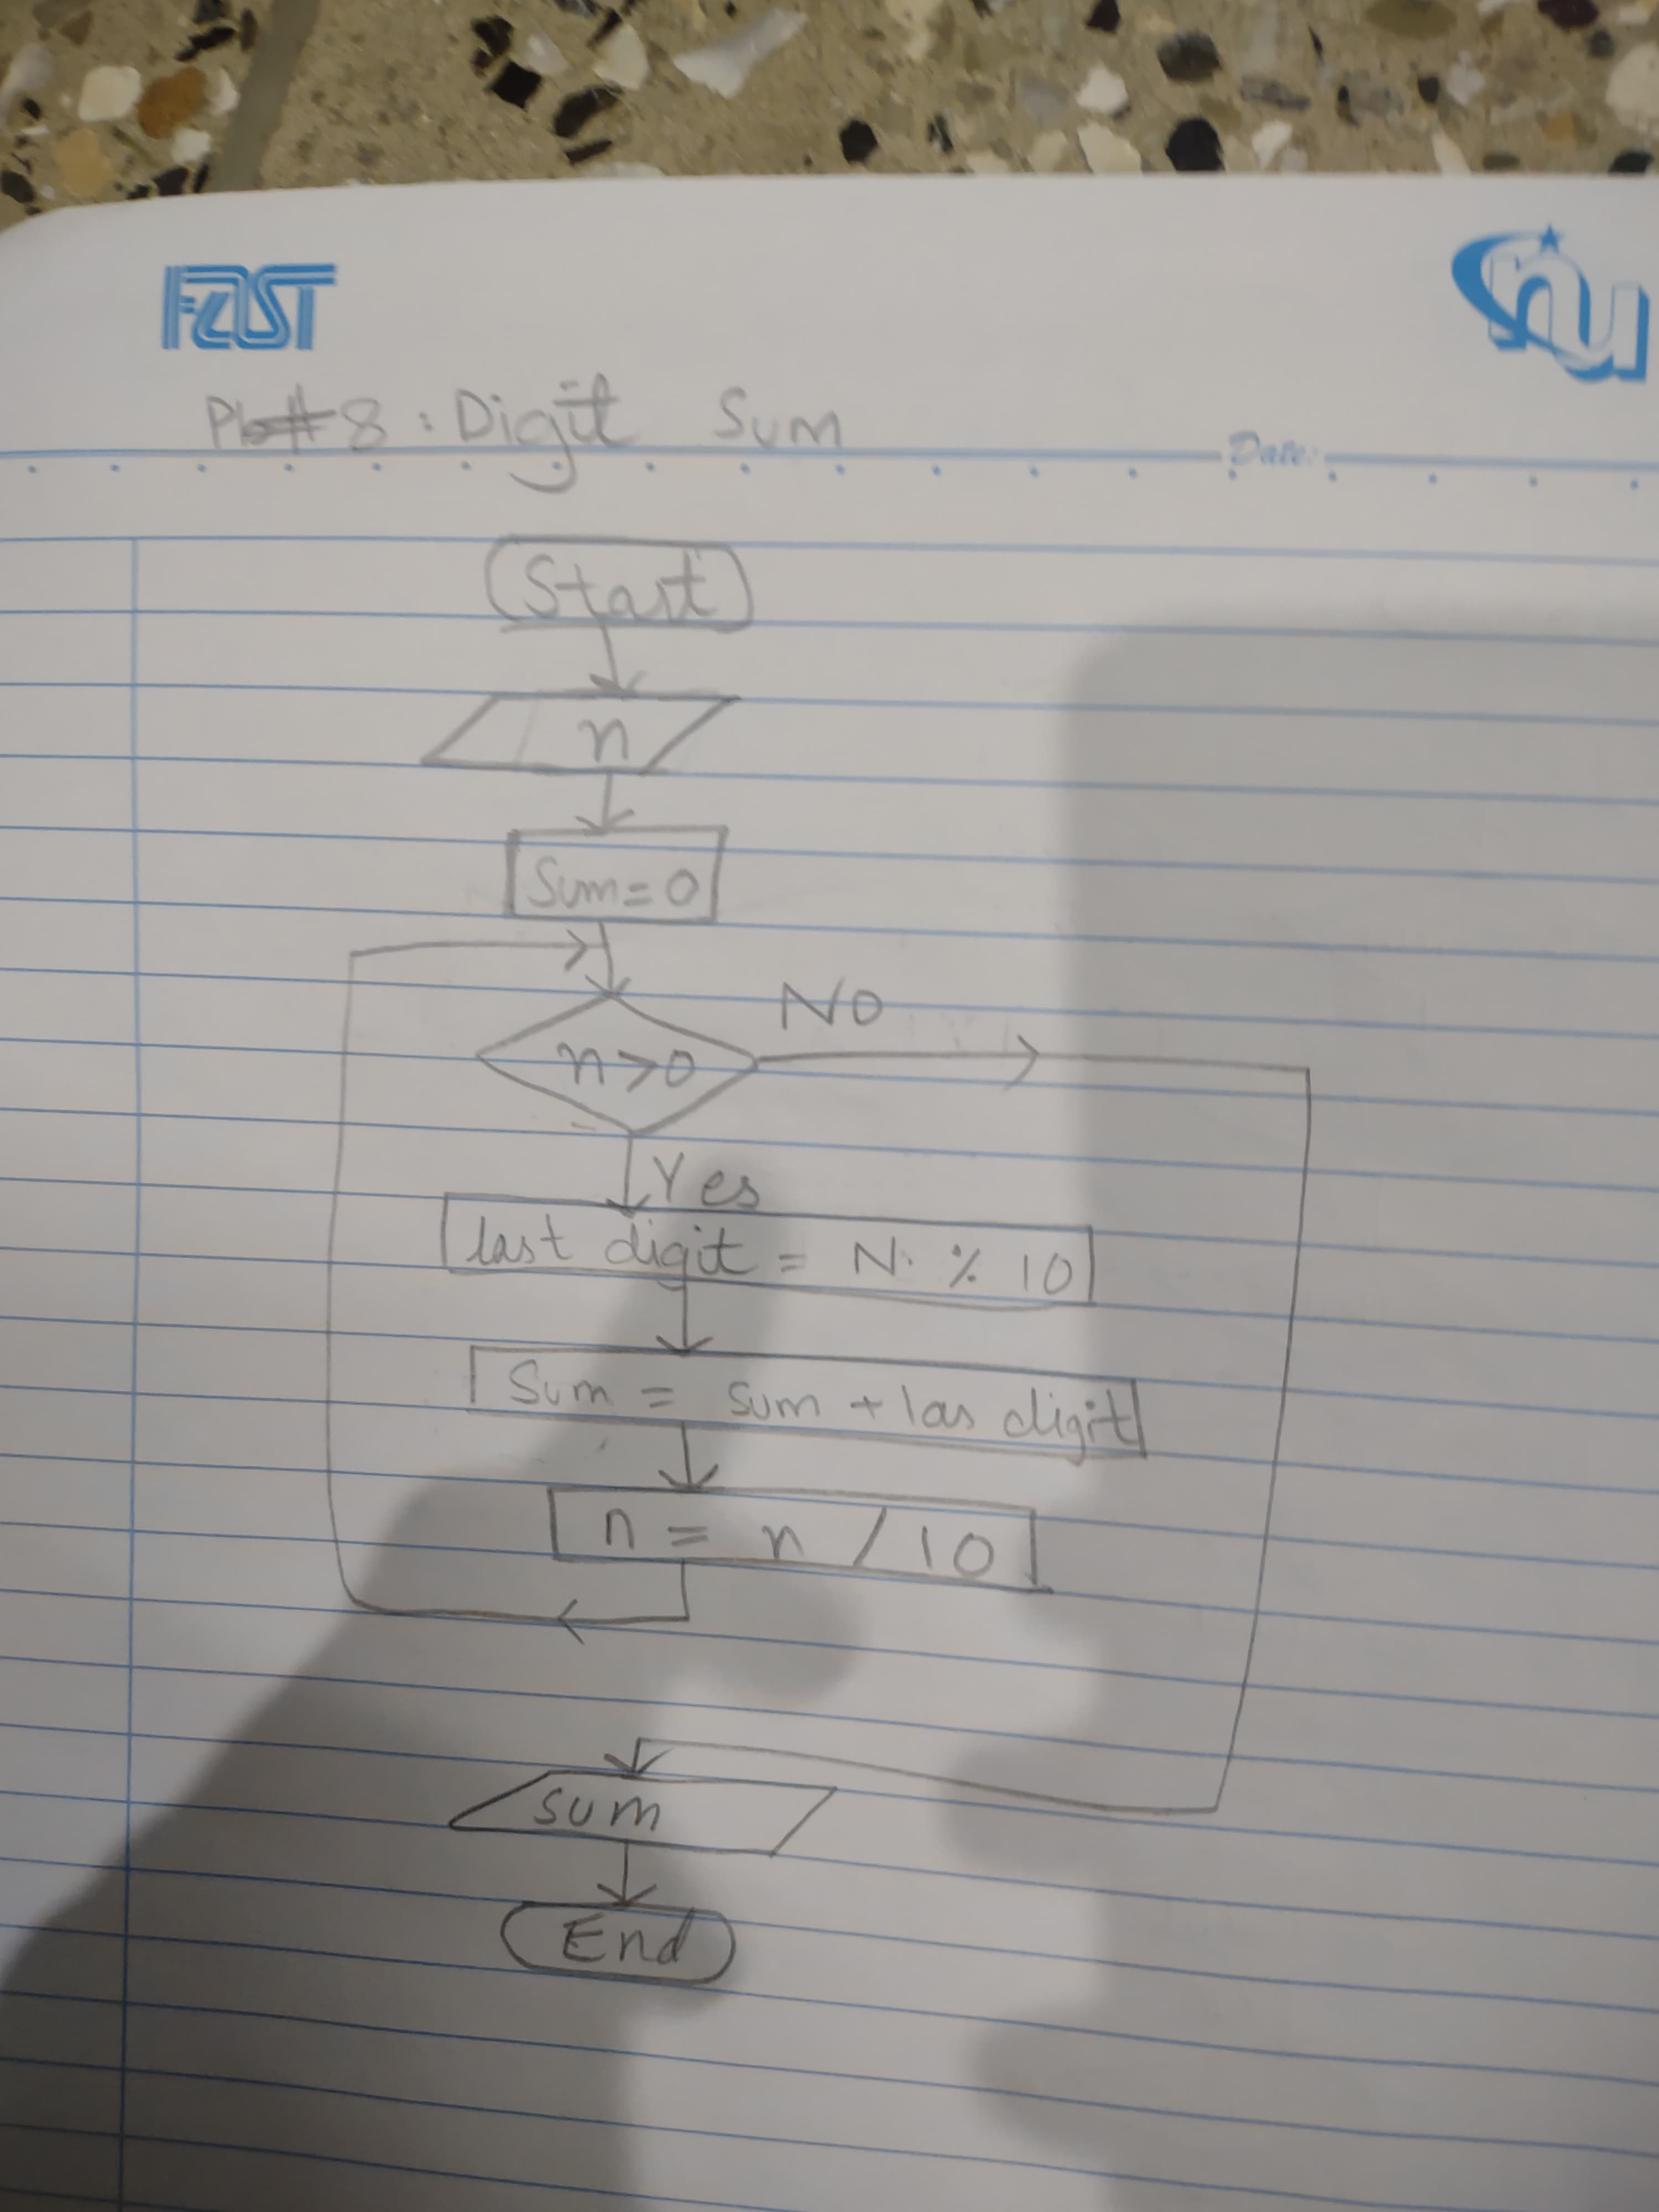 FAST
nu
8: Digit Sum
Date:
Start
n
Sum=0
n>0
NO
Yes
last digit = N. % 10
Sum = sum + las digit
n = n / 10
sum
End